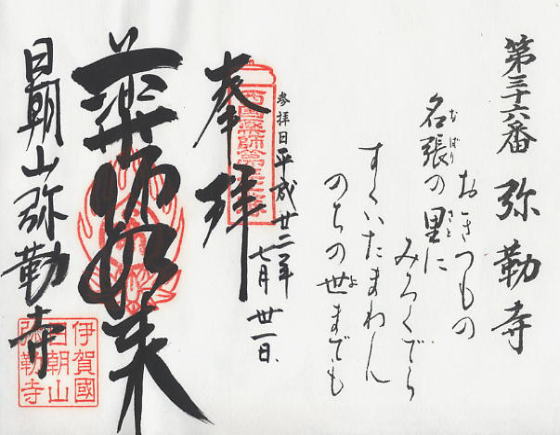 第三十六番 弥勒寺
おきつもの
名張の里に
なばり
さと
みろくでら
すくいたまわん
のちの世までも
よ
参拝日平成廿二年
七月廿一日
奉拝
薬師如来
日朝山弥勒寺
伊賀國
日朝山
弥勒寺